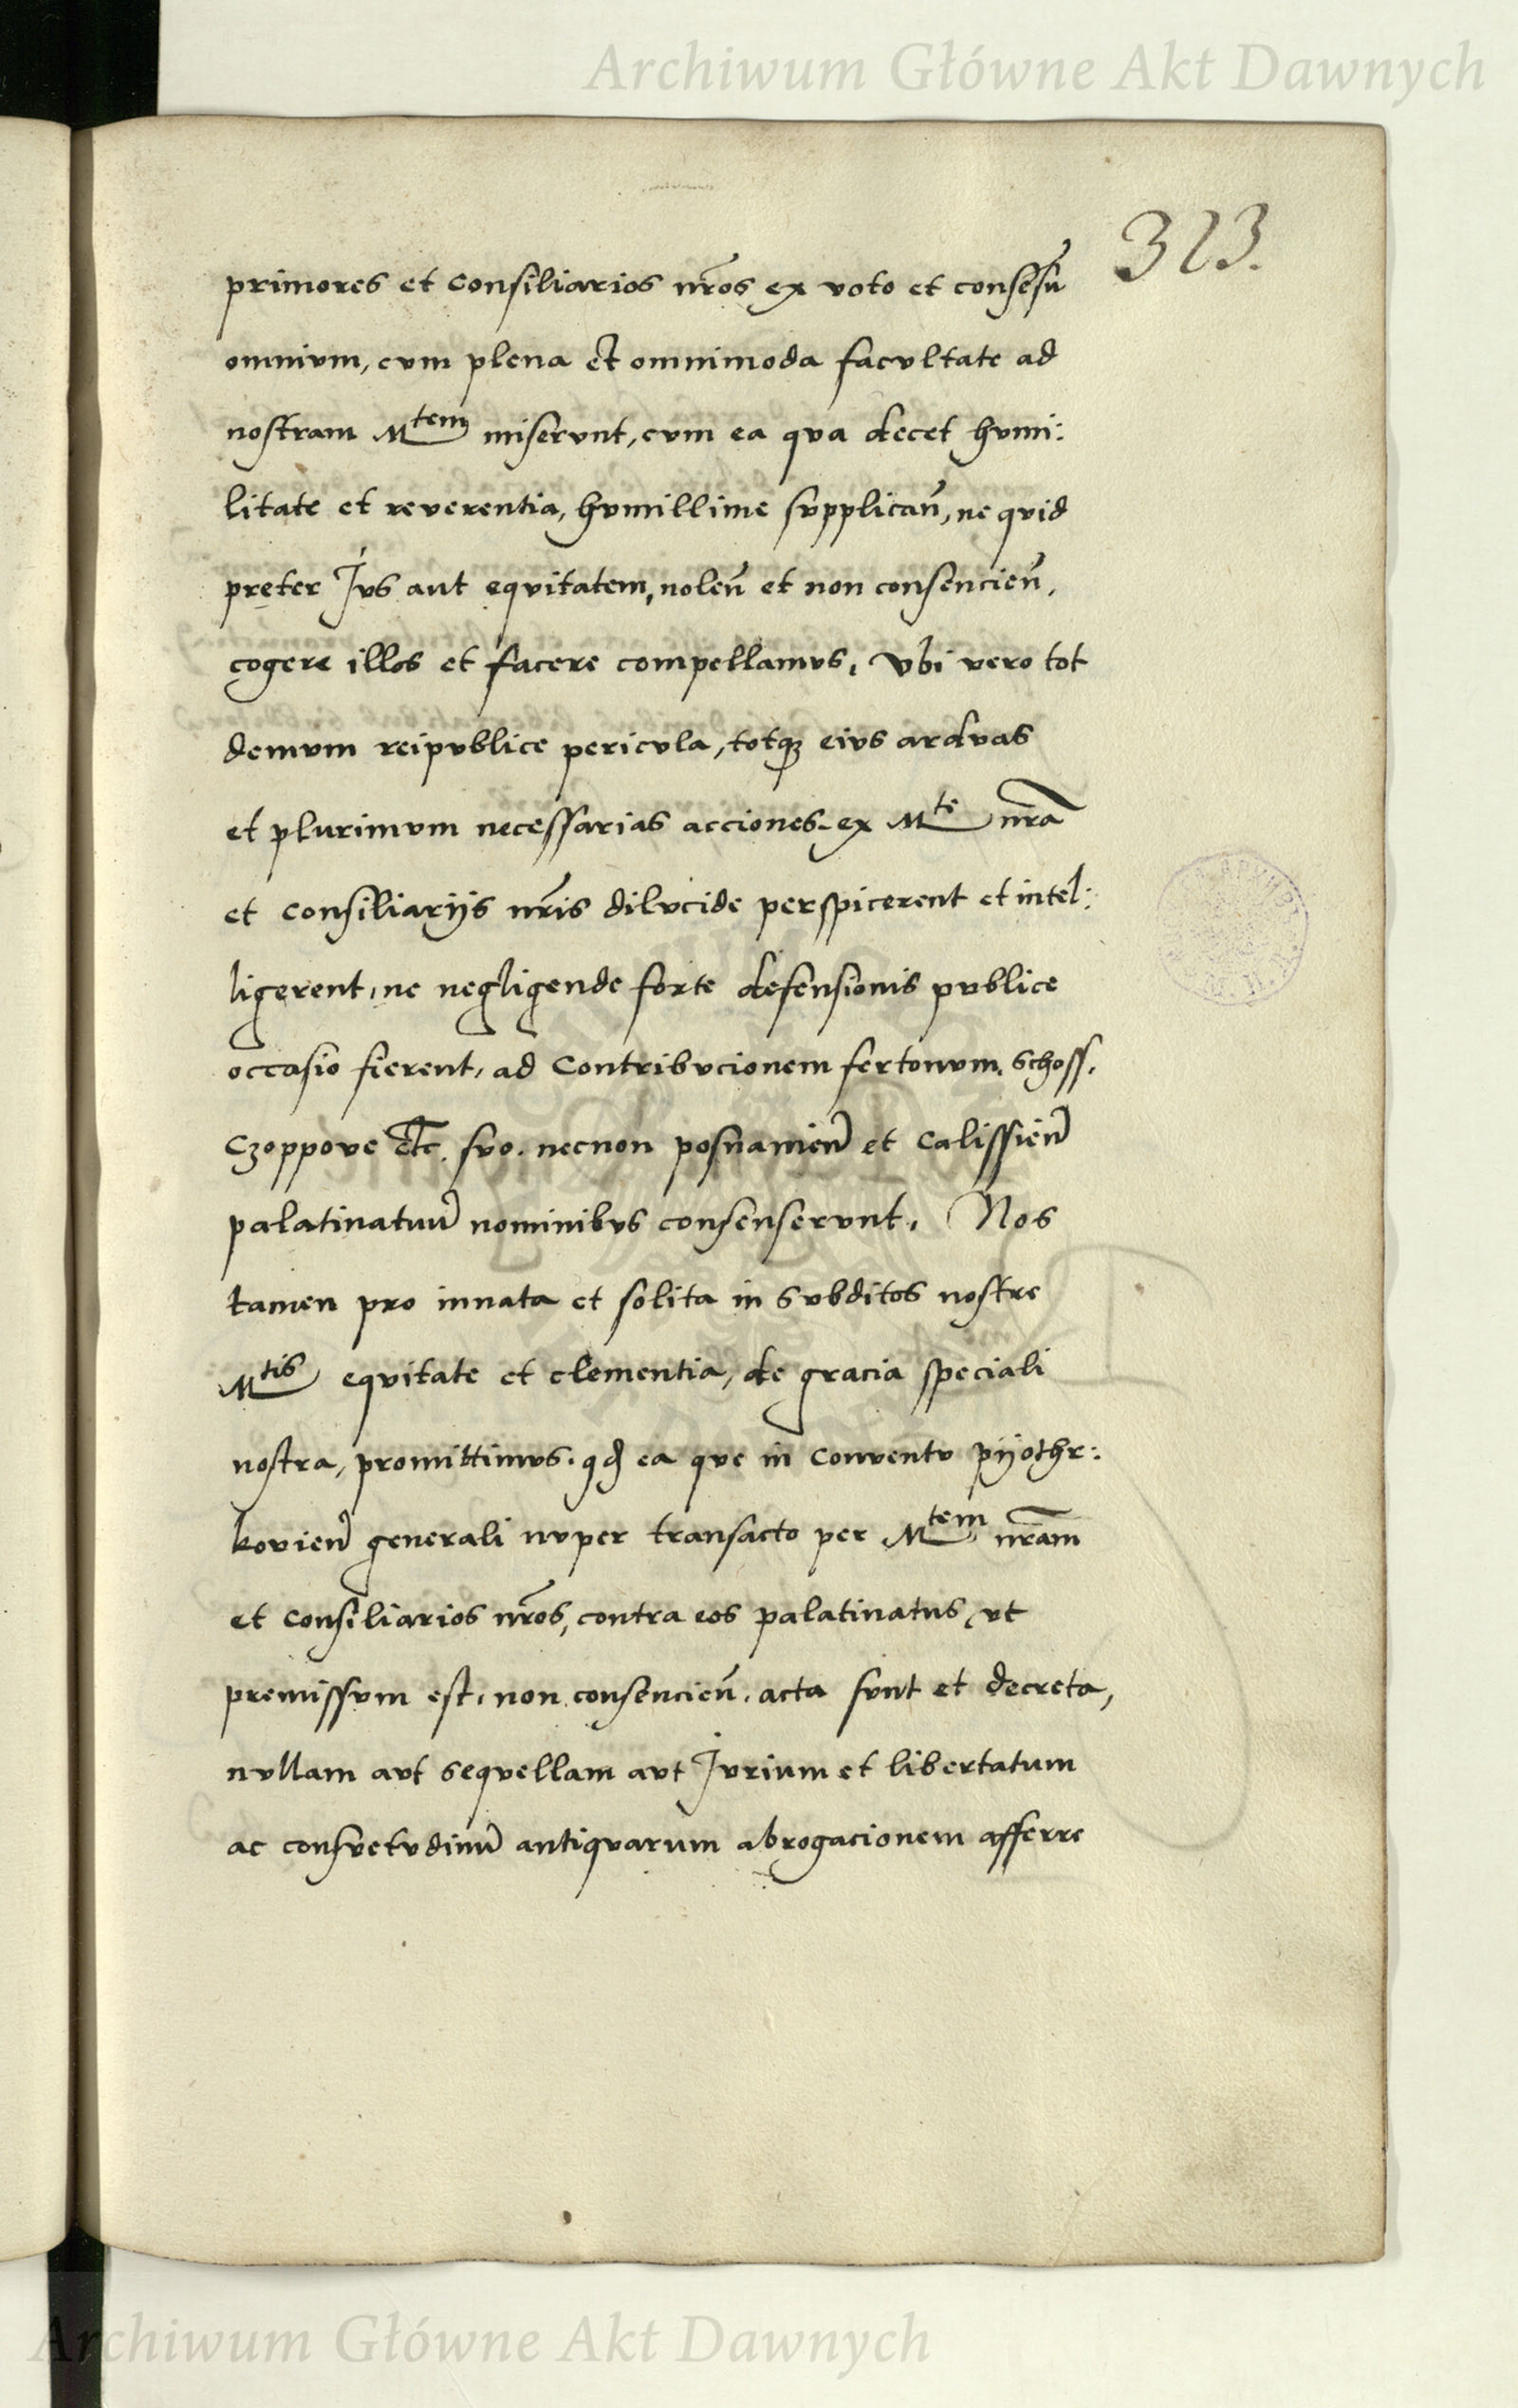 Archiwum Główne Akt Dawnych
323.
primores et Consiliarios nr̃os ex voto et consẽsu
omnivm, cvm plena et omnimoda facvltate ad
nostram Mtem miservnt, cvm ea qva decet hvmi:
litate et reverentia, hvmillime svpplicañ, ne qvid
pręter Jvs aut eqvitatem, noleñ et non consencieñ,
cogere illos et facere compellamvs, Vbi vero tot
demvm reipvblice pericvla, totqꝫ eivs ardvas
et plurimvm necessarias acciones ex Mte nr̃a
et Consiliarijs nr̃is dilvcide perspicerent et intel:
ligerent, ne negligende forte defensionis pvblice
occasio fierent, ad Contribvcionem fertonvm, Schoss,
Czoppove etc. svo. necnon posnanieñ et Calissieñ
palatinatuũ nominibvs consenservnt, Nos
tamen pro innata et solita in Svbditos nostre
Mtis eqvitate et clementia, de gracia speciali
nostra, promittimvs, qđ ea qve in Conventv pijothr:
kovieñ generali nvper transacto per Mtem nr̃am
et Consiliarios nr̃os, contra eos palatinatus, vt
premissvm est, non consencieñ, acta svnt et decreta,
nvllam avt seqvellam avt Jvrium et libertatum
ac consvetvdinũ antiqvarum abrogacionem afferre
Archiwum Główne Akt Dawnych